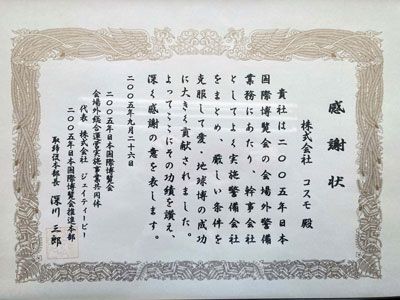 感謝状
株式会社 コスモ 殿
貴社は二〇〇五年日本
国際博覧会の会場外警備
業務にあたり、幹事会社
としてよく実施警備会社
をまとめ、厳しい条件を
克服して愛・地球博の成功
に大きく貢献されました。
よってここにその功績を讃え、
深く感謝の意を表します。
二〇〇五年九月二十六日
二〇〇五年日本国際博覧会
会場外総合運営実施事業共同体
代表 株式会社 ジェイティービー
二〇〇五年日本国際博覧会推進本部
取締役本部長 深川 三郎